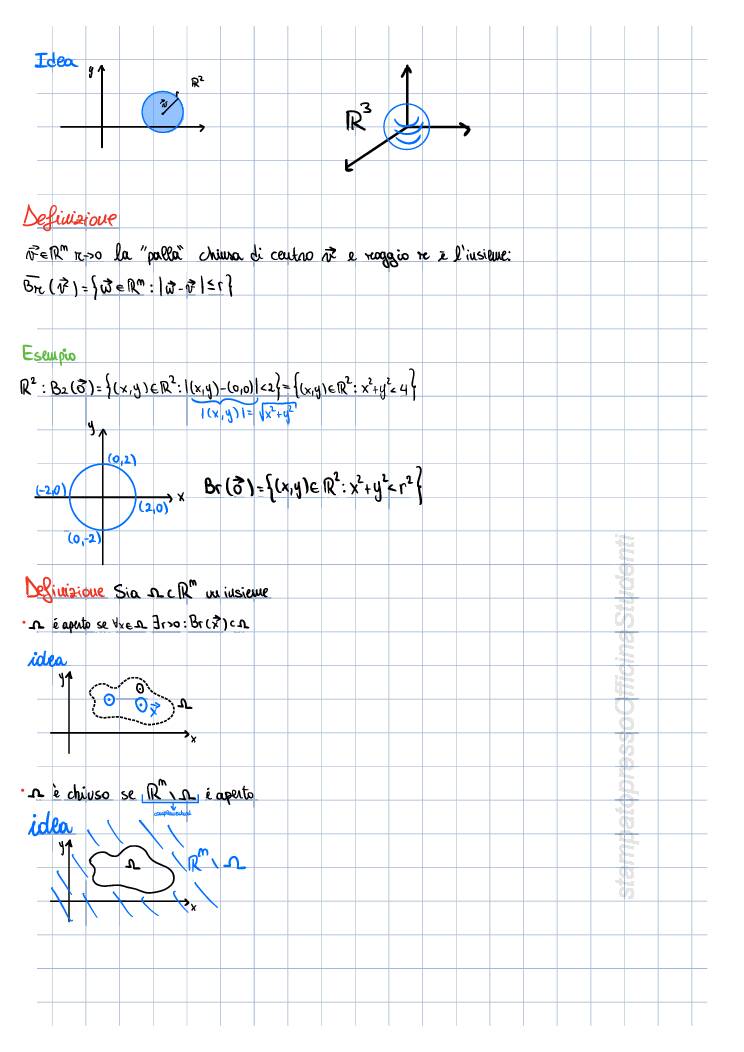 Idea
y
ℝ²
r
v⃗
ℝ³
Definizione
v⃗∈ℝᵐ r>0 la "palla" chiusa di centro v⃗ e raggio r è l'insieme:
B̅r(v⃗)={w⃗∈ℝᵐ: |w⃗-v⃗|≤r}
Esempio
ℝ²: B₂(o⃗)={(x,y)∈ℝ²:|(x,y)-(0,0)|<2}={(x,y)∈ℝ²: x²+y²<4}
|(x,y)|=√x²+y²
y
(0,2)
(-2,0)
x
(2,0)
(0,-2)
Br(o⃗)={(x,y)∈ℝ²: x²+y²<r²}
Definizione Sia Ω⊂ℝᵐ un insieme
• Ω é aperto se ∀x∈Ω ∃r>0: Br(x⃗)⊂Ω
idea
y
x⃗
Ω
x
• Ω è chiuso se ℝᵐ\Ω é aperto
complementare
idea
y
Ω
ℝᵐ\Ω
x
stampatopressoOfficinaStudenti